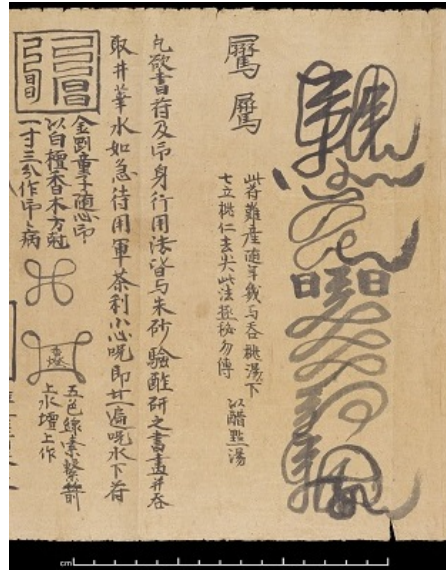 此符難産随年幾与吞桃湯下 以醋點湯
七立桃仁去尖此法極秘勿傳
凡欲書符及印身行用法皆与朱砂驗酢研之書盡并吞
取井華水如急待用軍荼利小心呪即廿遍呪水下符
金剛童子随心印
以白檀香木方尅
一寸三分作印之病
五色線索繋箭
上水壇上作
cm